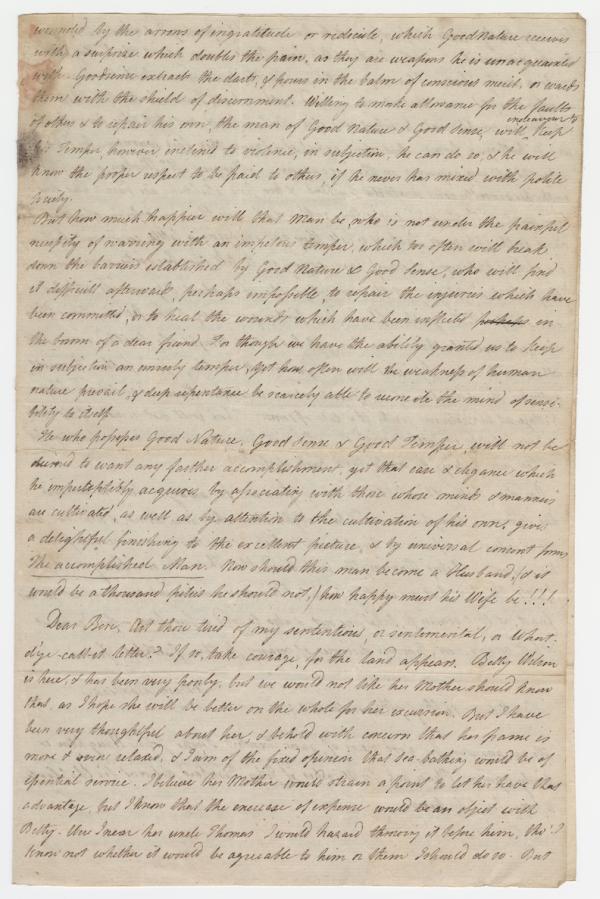 wounded by the arrows of ingratitude or redicule, which Good Nature receives
with a surprize which doubles the pain, as they are weapons he is unacquainted
with. Goodsense extracts the darts, & pours in the balm of conscious merit, or wards
them with the shield of discernment. Willing to make allowance for the faults
of others & to repair his own, the man of Good Nature & Good Sense, will endeavour to keep
his Temper, however inclined to violence, in subjection, he can do so, & he will
know the proper respect to be paid to others, if he never has mixed with polite
society.
But how much happier will that Man be, who is not under the painful
necessity of warring with an impetuous temper, which too often will break
down the barriers established by Good Nature & Good Sense, who will find
it difficult afterwards, perhaps impossible, to repair the injuries which have
been committed, or to heal the wounds which have been inflicted perhaps in
the bosom of a dear friend. For though we have the ability granted us to keep
in subjection an unruly temper, yet how often will the weakness of human
nature prevail, & deep repentance be scarcely able to reconcile the mind of sensi-
bility to itself.
He who possesses Good Nature, Good Sense & Good Temper, will not be
to want any farther accomplishment, yet that ease & elegance which
he imperceptibly acquires by associating with those whose minds & manners
are cultivated, as well as by attention to the cultivation of his own, gives
a delightful finishing to the excellent picture, & by universal consent forms
The accomplished Man. Now should this man become a Husband, (& it
would be a thousand pities he should not,) how happy must his Wife be!!!
Dear Bess, Art thou tired of my sententious, or sentimental, or What-
d'ye-call-it letter? If so, take courage, for the land appears. Betsy Wilson
is here, & has been very poorly, but we would not like her Mother should know
that, as I hope she will be better on the whole for her excursion. But I have
been very thoughtful about her, & behold with concern that her frame is
more & more relaxed, & I am of the fixed opinion that sea-bathing would be of
essential service. I believe her Mother would strain a point to let her have that
advantage, but I know that the encrease of expense would be an object with
Betsy. Were I near her uncle Thomas I would hazard throwing it before him, tho' I
know not whether it would be agreeable to him or them I should do so. But